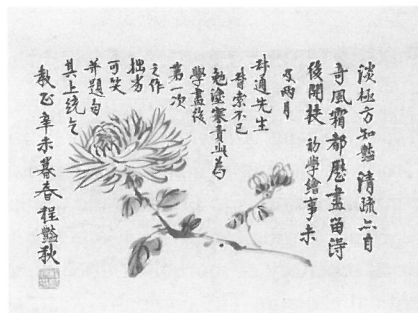 淡極方知豔清疏亦自
奇風霜都歷盡留得
後開枝 初學繪事未
及兩月
科通先生
督索不已
勉塗塞責此為
學畫後
第一次
之作
拙劣
可笑
並題句
其上統乞
教正 辛未暮春 程豔秋